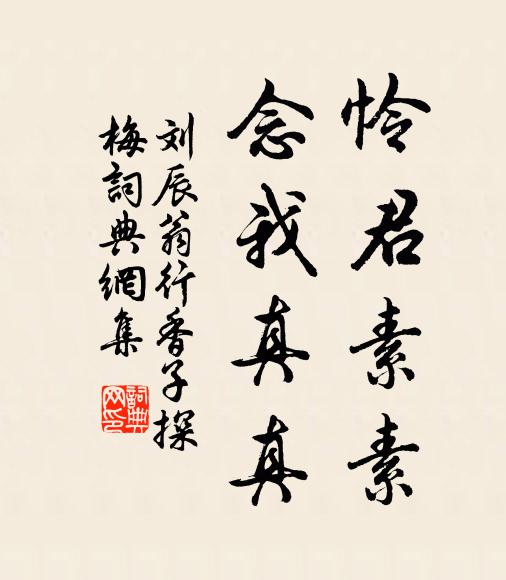 怜君素素
念我真真
刘辰翁行香子探
梅詞典網集
詞典
网印